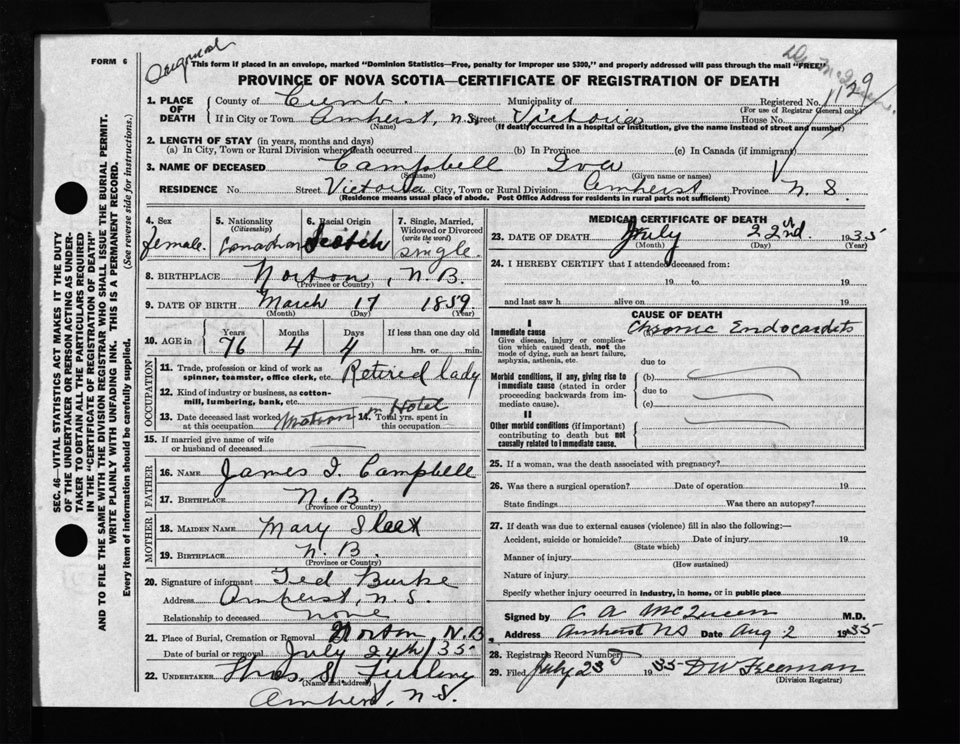 Original
FORM 6
This form if placed in an envelope, marked "Dominion Statistics—Free, penalty for improper use $300," and properly addressed will pass through the mail "FREE"
PROVINCE OF NOVA SCOTIA—CERTIFICATE OF REGISTRATION OF DEATH
1129
1. PLACE OF DEATH County of Cumb. Municipality of Registered No.
(For use of Registrar General only)
If in City or Town Amherst, N.S. Street Victoria House No.
(Name) (If death occurred in a hospital or institution, give the name instead of street and number)
2. LENGTH OF STAY (in years, months and days)
(a) In City, Town or Rural Division where death occurred (b) In Province (c) In Canada (if immigrant)
3. NAME OF DECEASED Campbell Iva
(Surname) (Given name or names)
RESIDENCE No. Street Victoria City, Town or Rural Division Amherst Province N. S
(Residence means usual place of abode. Post Office Address for residents in rural parts not sufficient)
SEC. 46—VITAL STATISTICS ACT MAKES IT THE DUTY
OF THE UNDERTAKER OR PERSON ACTING AS UNDER-
TAKER TO OBTAIN ALL THE PARTICULARS REQUIRED
IN THE "CERTIFICATE OF REGISTRATION OF DEATH"
AND TO FILE THE SAME WITH THE DIVISION REGISTRAR WHO SHALL ISSUE THE BURIAL PERMIT.
WRITE PLAINLY WITH UNFADING INK. THIS IS A PERMANENT RECORD.
Every item of information should be carefully supplied. (See reverse side for instructions.)
4. Sex
female.
5. Nationality
(Citizenship)
Canadian
6. Racial Origin
Scotch
7. Single, Married,
Widowed or Divorced
(write the word)
single.
8. BIRTHPLACE Norton, N.B.
(Province or Country)
9. DATE OF BIRTH March 17 1859
(Month) (Day) (Year)
10. AGE in Years Months Days If less than one day old
76 4 4 hrs. or min.
OCCUPATION
11. Trade, profession or kind of work as
spinner, teamster, office clerk, etc. Retired lady
12. Kind of industry or business, as cotton-
mill, lumbering, bank, etc. Hotel
13. Date deceased last worked
at this occupation Matron
14. Total yrs. spent in
this occupation
15. If married give name of wife
or husband of deceased
FATHER
16. NAME James I. Campbell
17. BIRTHPLACE N.B.
(Province or Country)
MOTHER
18. MAIDEN NAME Mary
19. BIRTHPLACE N. B.
(Province or Country)
20. Signature of informant Ted Burke
Address Amherst, N.S.
Relationship to deceased none
21. Place of Burial, Cremation or Removal Norton, N.B
Date of burial or removal July 24th, 35
22. UNDERTAKER Thos. S.
(Name and address)
Amherst, N.S.
MEDICAL CERTIFICATE OF DEATH
23. DATE OF DEATH July 22nd. 1935
(Month) (Day) (Year)
24. I HEREBY CERTIFY that I attended deceased from:
19 to 19
and last saw h alive on 19
CAUSE OF DEATH
I
Immediate cause (a) Chronic Endocarditis
Give disease, injury or complica-
tion which caused death, not the
mode of dying, such as heart failure,
asphyxia, asthenia, etc.
due to
Morbid conditions, if any, giving rise to
immediate cause (stated in order
proceeding backwards from im-
mediate cause).
(b)
due to
(c)
II
Other morbid conditions (if important)
contributing to death but not
causally related to immediate cause.
25. If a woman, was the death associated with pregnancy?
26. Was there a surgical operation? Date of operation 19
State findings Was there an autopsy?
27. If death was due to external causes (violence) fill in also the following:—
Accident, suicide or homicide? Date of injury 19
(State which)
Manner of injury
(How sustained)
Nature of injury
Specify whether injury occurred in industry, in home, or in public place
Signed by C. A. McQueen M.D.
Address Amherst NS Date Aug 2 1935
28. Registrar's Record Number
29. Filed July 23 1935 DW Freeman
(Division Registrar)